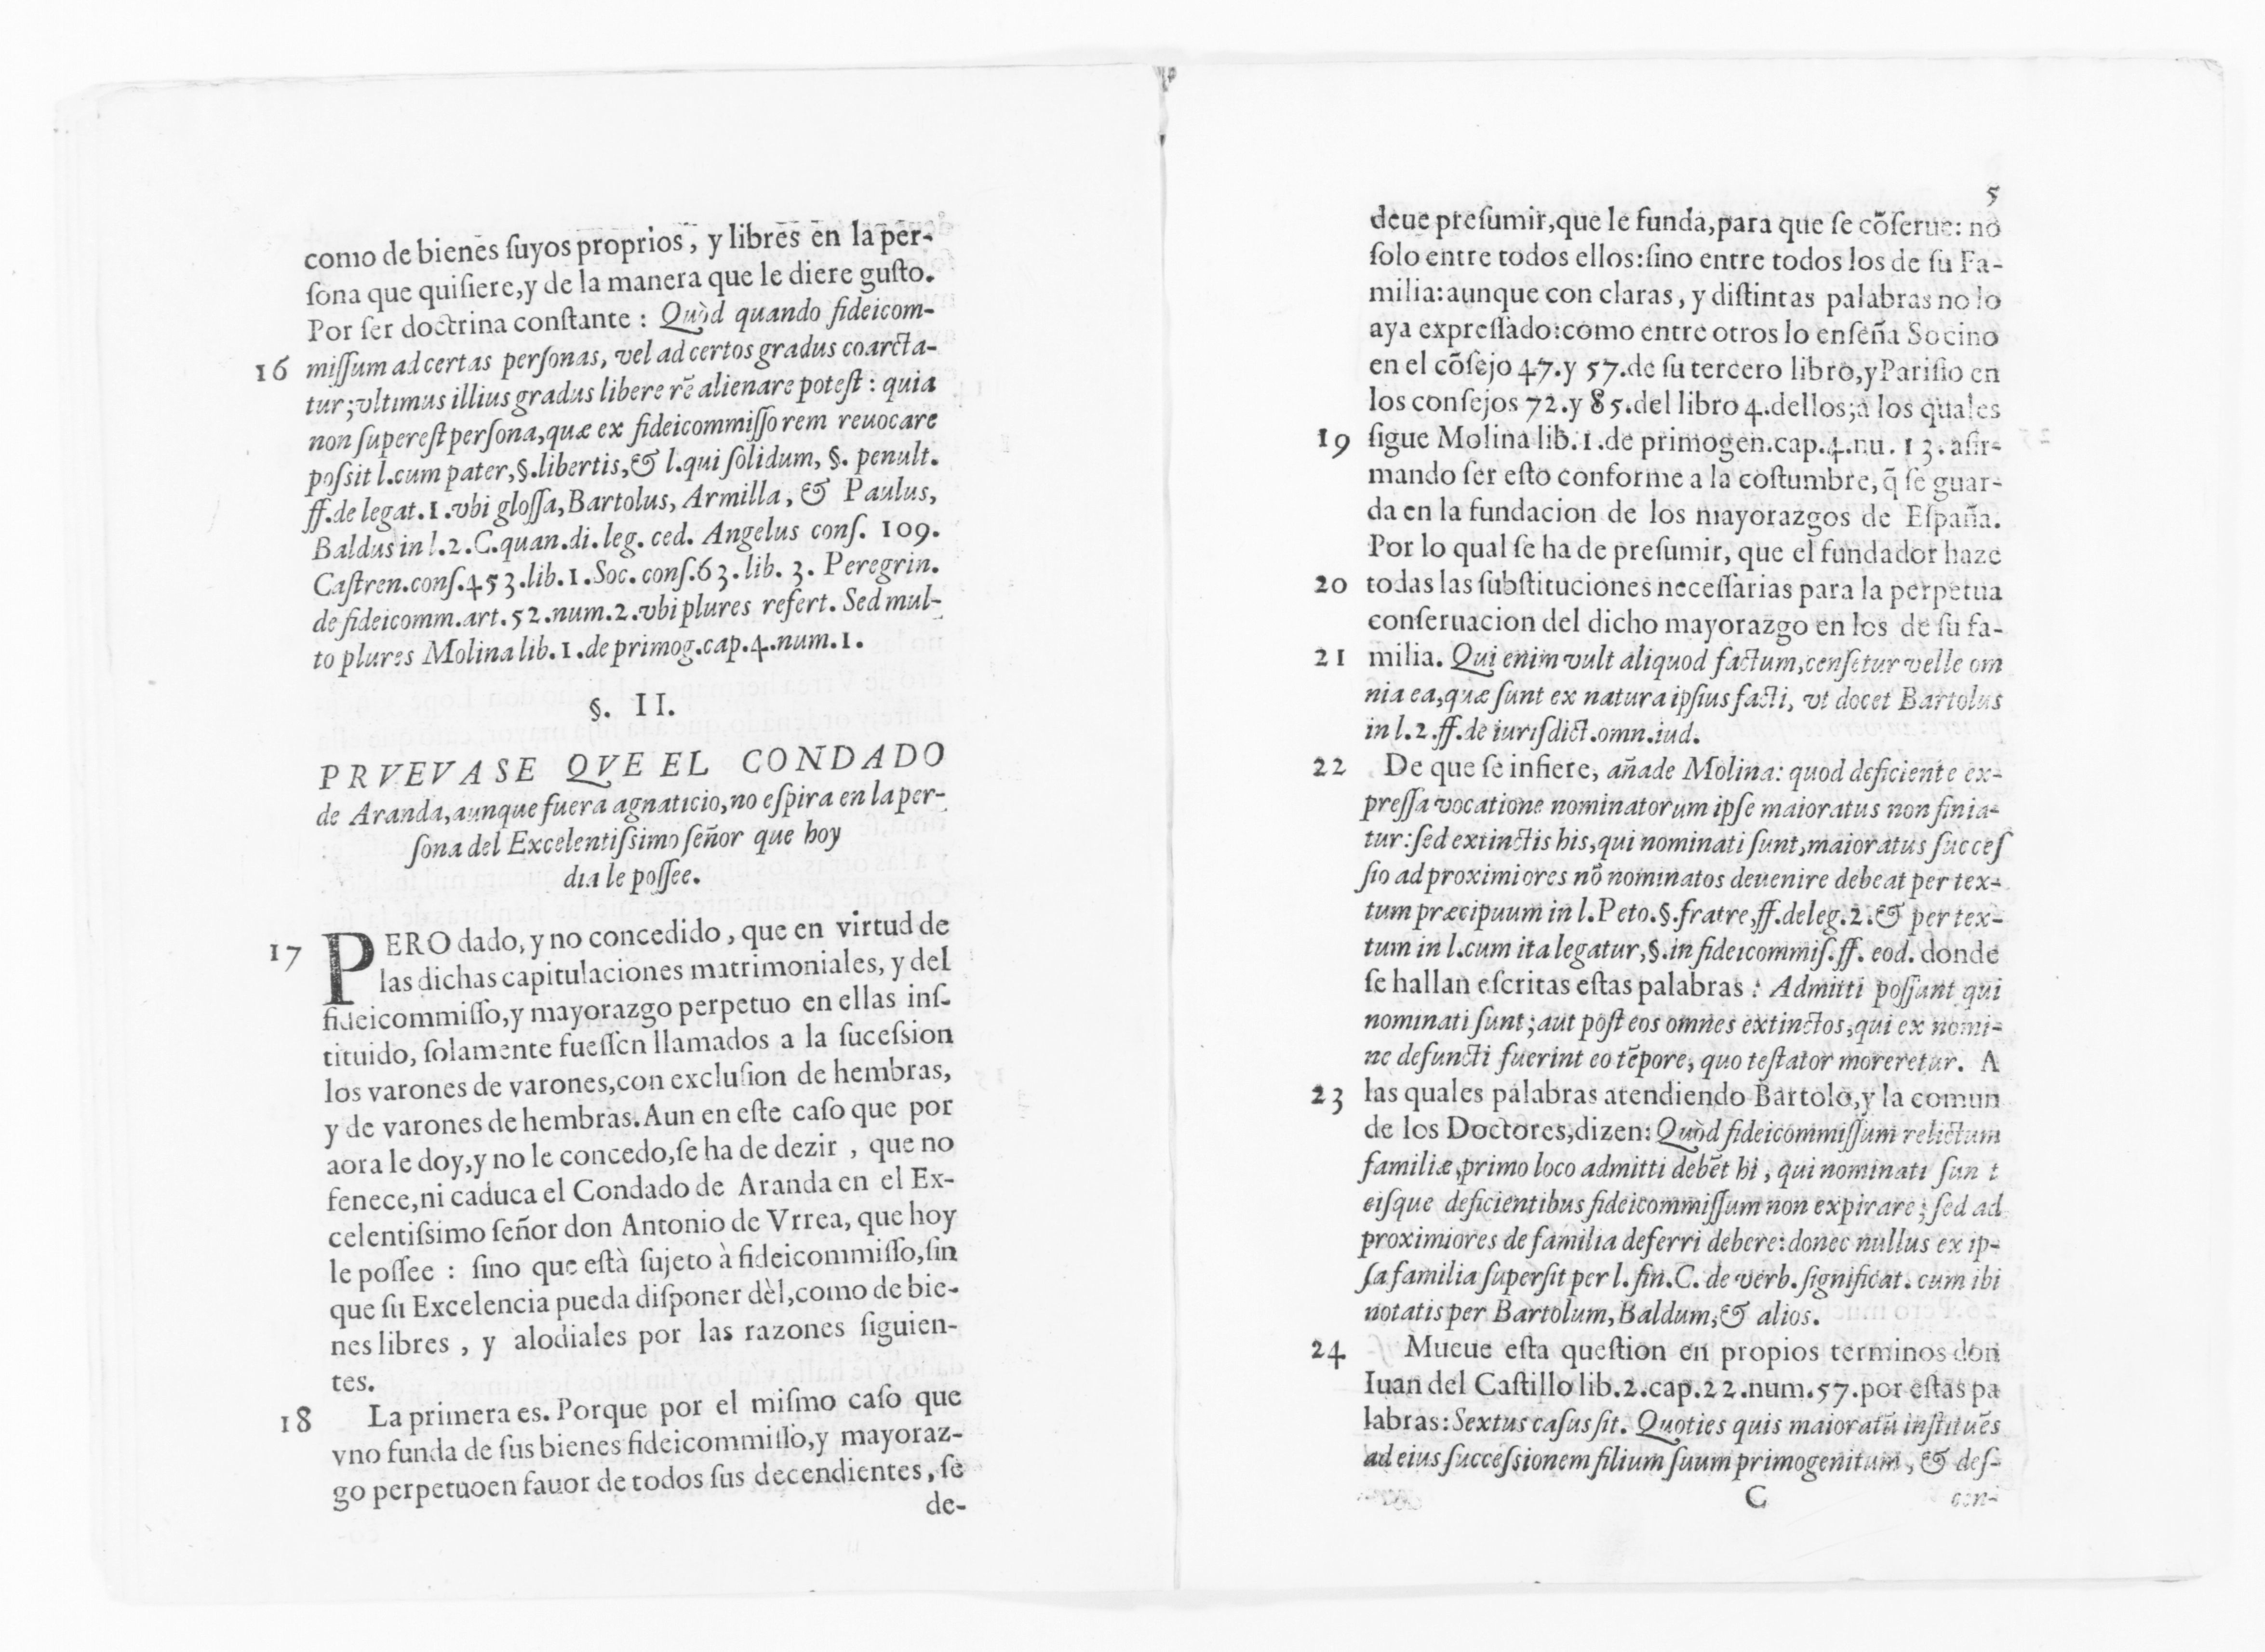 como de bienes ſuyos proprios, y libres en la per-
ſona que quiſiere,y de la manera que le diere guſto.
Por ſer doctrina conſtante : Quòd quando fideicom-
16 miſſum ad certas perſonas, vel ad certos gradus coarcta-
tur;vltimus illius gradus libere rē alienare poteſt : quia
non ſupereſt perſona,quæ ex fideicommiſſo rem reuocare
poſsit l.cum pater,§.libertis,& l.qui ſolidum, §. penult.
ff.de legat.1.vbi gloſſa,Bartolus, Armilla, & Paulus,
Baldus in l.2.C.quan.di.leg. ced. Angelus conſ. 109.
Caſtren.conſ.453.lib.1.Soc. conſ.63.lib. 3. Peregrin.
de fideicomm.art.52.num.2.vbi plures refert. Sed mul-
to plures Molina lib.1.de primog.cap.4.num.1.
§. II.
PRVEVASE QVE EL CONDADO
de Aranda,aunque fuera agnaticio,no eſpira en la per-
ſona del Excelentiſsimo ſeñor que hoy
dia le poſſee.
17 PERO dado, y no concedido, que en virtud de
las dichas capitulaciones matrimoniales, y del
fideicommiſſo,y mayorazgo perpetuo en ellas inſ-
tituido, ſolamente fueſſen llamados a la ſuceſsion
los varones de varones,con excluſion de hembras,
y de varones de hembras.Aun en eſte caſo que por
aora le doy,y no le concedo,ſe ha de dezir , que no
fenece,ni caduca el Condado de Aranda en el Ex-
celentiſsimo ſeñor don Antonio de Vrrea, que hoy
le poſſee : ſino que eſtà ſujeto à fideicommiſſo,ſin
que ſu Excelencia pueda diſponer dèl,como de bie-
nes libres , y alodiales por las razones ſiguien-
tes.
18 La primera es. Porque por el miſmo caſo que
vno funda de ſus bienes fideicommiſſo,y mayoraz-
go perpetuo en fauor de todos ſus decendientes, ſe
de-
5
deue preſumir,que le funda,para que ſe cōſerue: no
ſolo entre todos ellos:ſino entre todos los de ſu Fa-
milia:aunque con claras, y diſtintas palabras no lo
aya expreſſado:como entre otros lo enſeña Socino
en el cōſejo 47.y 57.de ſu tercero libro,y Pariſio en
los conſejos 72.y 85.del libro 4.dellos;a los quales
19 ſigue Molina lib.1.de primogen.cap.4.nu. 13. afir-
mando ſer eſto conforme a la coſtumbre, q̄ ſe guar-
da en la fundacion de los mayorazgos de Eſpaña.
Por lo qual ſe ha de preſumir, que el fundador haze
20 todas las ſubſtituciones neceſſarias para la perpetua
conſeruacion del dicho mayorazgo en los de ſu fa-
21 milia. Qui enim vult aliquod factum,cenſetur velle om
nia ea,quæ ſunt ex natura ipſius facti, vt docet Bartolus
in l.2.ff.de iuriſdict.omn.iud.
22 De que ſe infiere, añade Molina: quod deficiente ex-
preſſa vocatione nominatorum ipſe maioratus non finia-
tur:ſed extinctis his,qui nominati ſunt,maioratus ſucceſ
ſio ad proximiores nō nominatos deuenire debeat per tex-
tum præcipuum in l.Peto.§.fratre,ff.deleg.2.& per tex-
tum in l.cum ita legatur,§.in fideicommiſ.ff. eod. donde
ſe hallan eſcritas eſtas palabras : Admitti poſſunt qui
nominati ſunt;aut poſt eos omnes extinctos,qui ex nomi-
ne defuncti fuerint eo tēpore, quo teſtator moreretur. A
23 las quales palabras atendiendo Bartolo,y la comun
de los Doctores,dizen: Quòd fideicommiſſum relictum
familiæ,primo loco admitti debēt hi , qui nominati ſun t
eiſque deficientibus fideicommiſſum non expirare; ſed ad
proximiores de familia deferri debere:donec nullus ex ip-
ſa familia ſuperſit per l. fin.C. de verb.ſignificat. cum ibi
notatis per Bartolum,Baldum,& alios.
24 Mueue eſta queſtion en propios terminos don
Iuan del Caſtillo lib.2.cap.22.num.57.por eſtas pa
labras:Sextus caſus ſit. Quoties quis maioratū inſtituēs
ad eius ſucceſsionem filium ſuum primogenitum, & deſ-
C cen-